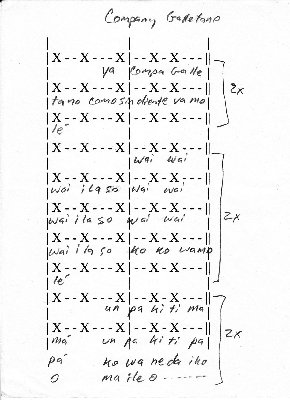 Company Galletano
X---X----X|--X-X----||
ya compa Galle
X---X----X|--X-X----||
tano como sin diente va mo
X---X----X|--X-X----||
le'
X---X----X|--X-X----||
wai wai
X---X----X|--X-X----||
wai ila so wai wai
X---X----X|--X-X----||
wai ila so wai wai
X---X----X|--X-X----||
wai ila so ko ko wamo
X---X----X|--X-X----||
le'
X---X----X|--X-X----||
un pa ki ti ma
X---X----X|--X-X----||
má un pa ki ti pa
pá ko wa ne da iko
o ma ile o --------
2x
2x
2x